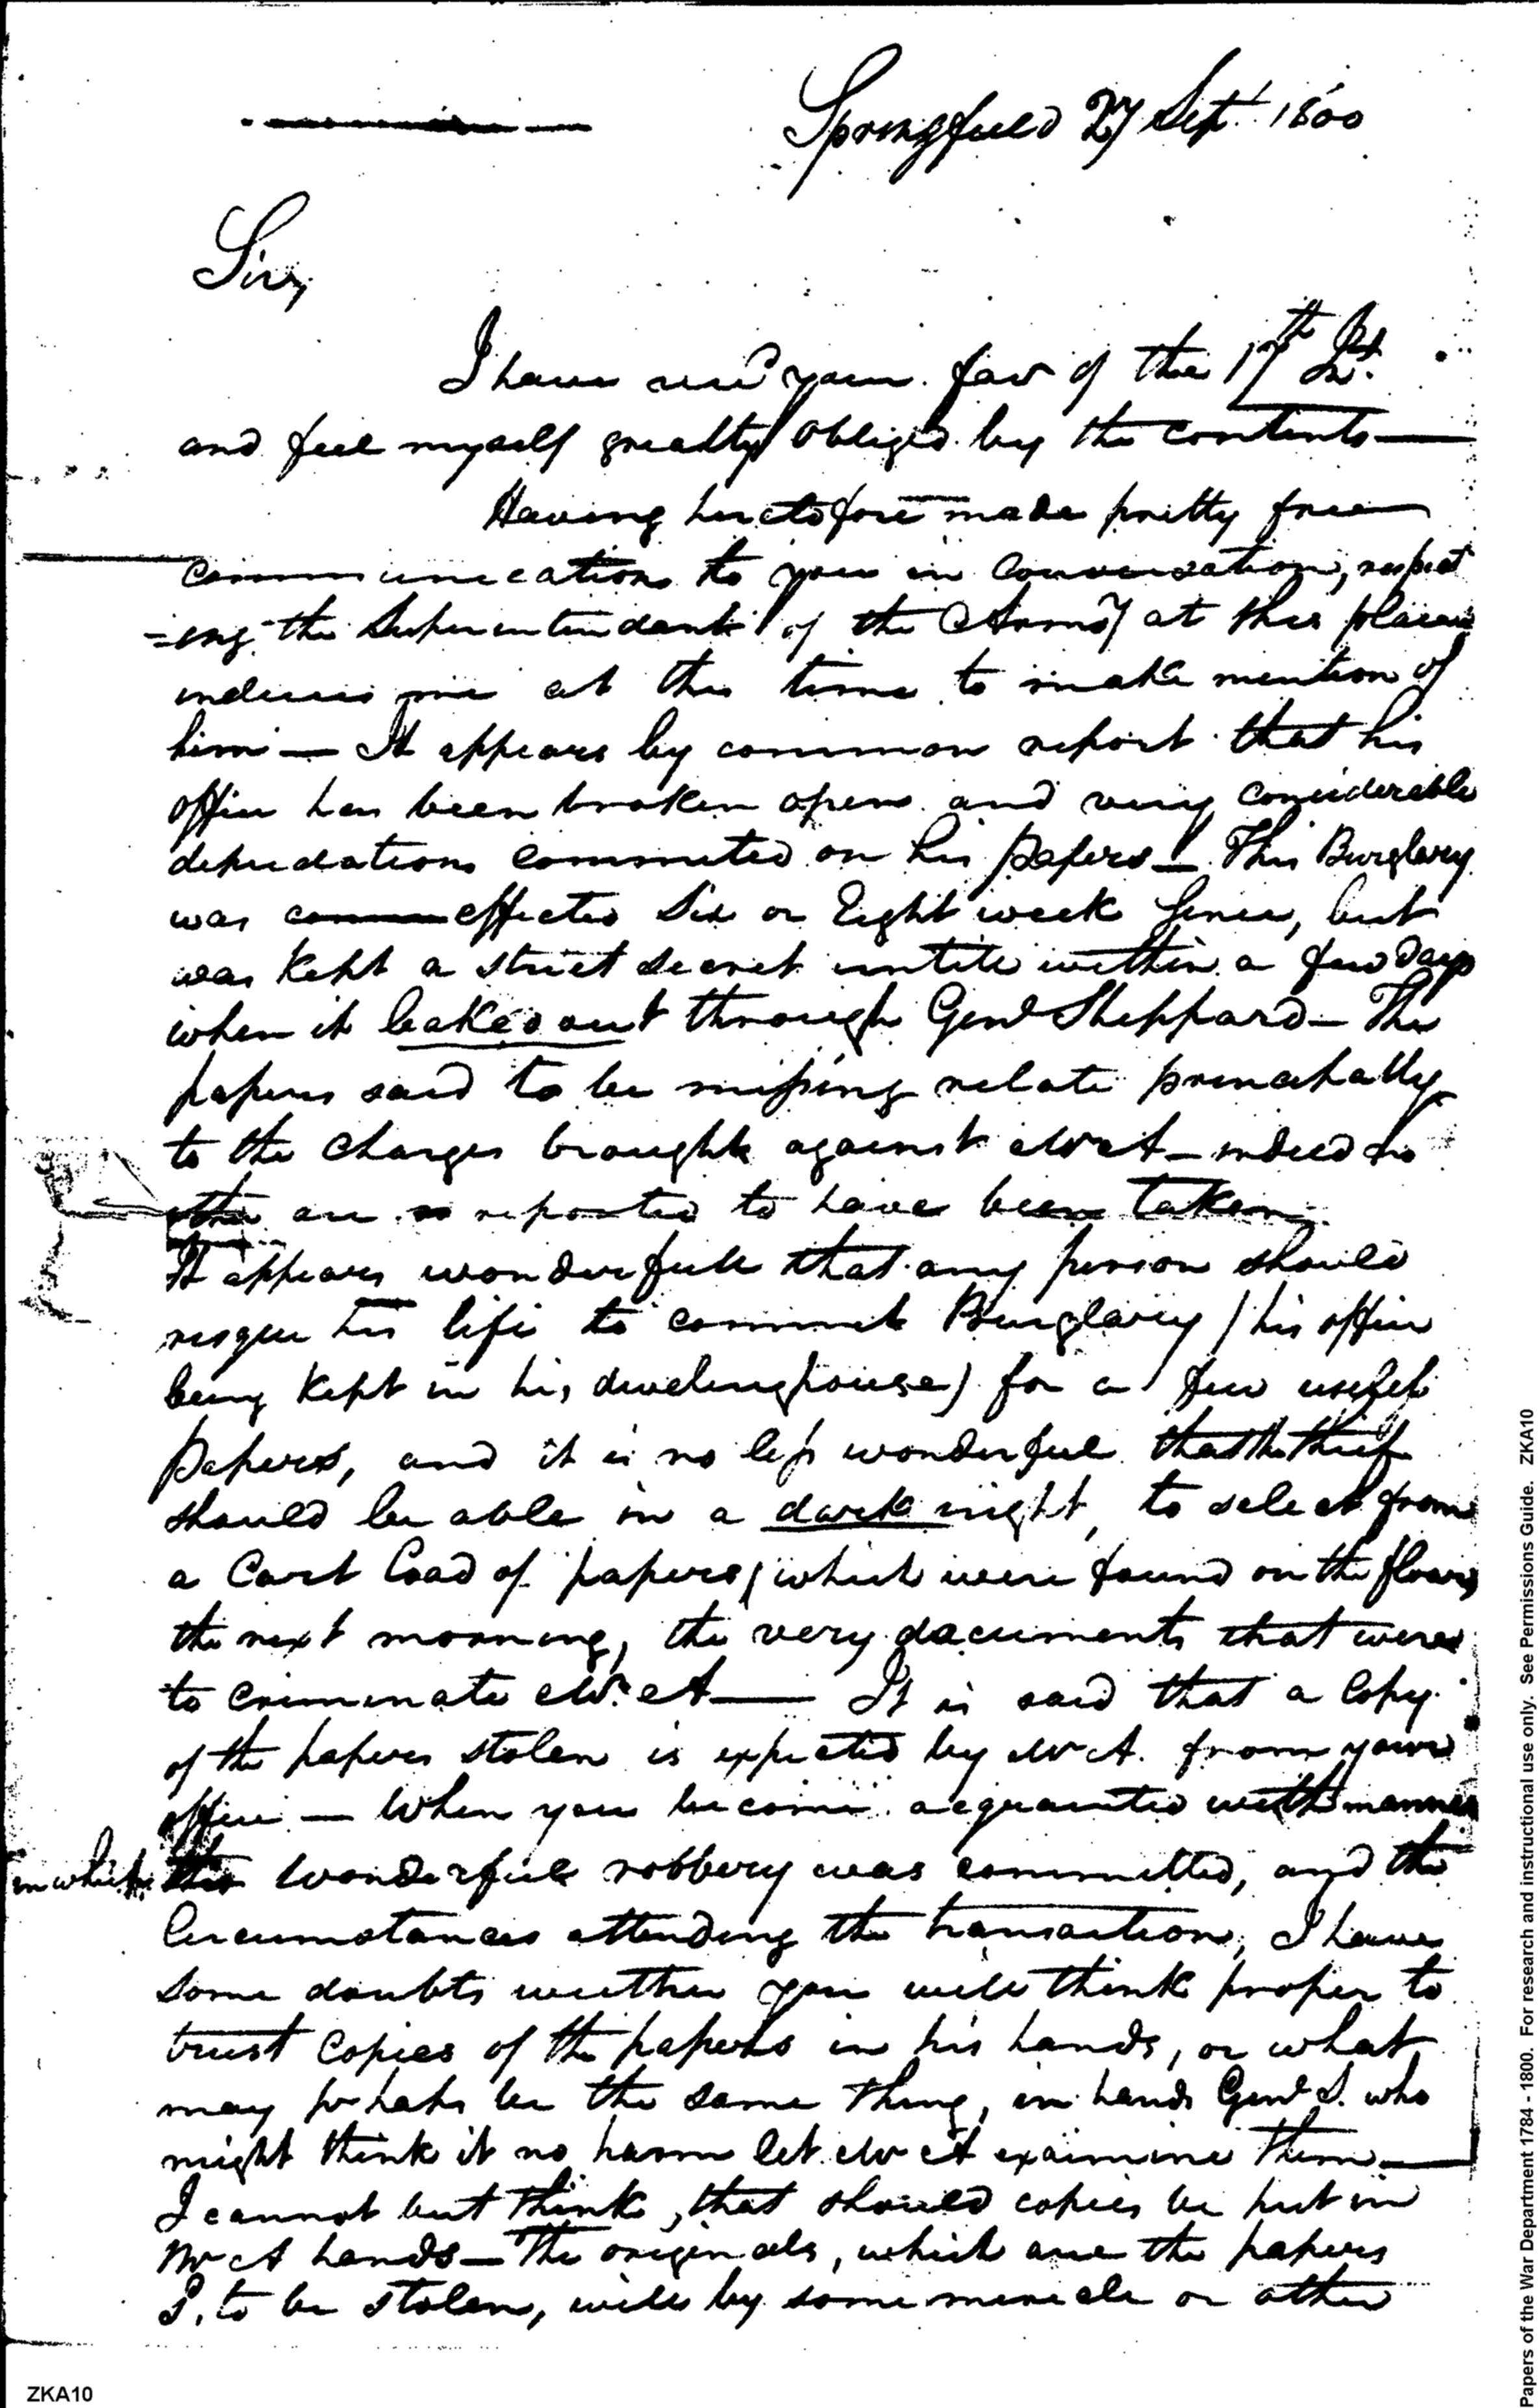 Springfield 27 Sept. 1800
Sir,
I have recd your fav of the 17th Int.
and feel myself greatly obliged by the contents—
Having heretofore made pretty free
communications to you in conversation, respect
-ing the Superintendant of the Armoy at this place
induces me at this time to make mention of
him — It appears by common report that his
office has been broken open and very considerable
depredations commited on his papers — This Burglary
was effected Six or Eight week Sence, but
was Kept a strict secret untile within a few days
when it leaked out through Genl Sheppard — The
papers said to be missing relate principally
to the charges brought against Mr A — indeed no
other are reported to have been taken.
It appears wonderfull that any person should
risque his life to commit Burglary (his office
being Kept in his dwelinghouse) for a few useful
papers, and it is no less wonderful that the thief
should be able in a dark night, to select from
a Cart Load of papers (which were found on the floor)
the next morning, the very documents that were
to criminate Mr. A — It is said that a Copy
of the papers stolen is expected by Mr A. from your
office — When you become acquainted with manner
in which this wonderfull robbery was committed, and the
Circumstances attending the transaction, I have
some doubts weether you will think proper to
trust Copies of the papers in his hands, or what
may prhaps be the same thing, in hands Genl S. who
might think it no harm let Mr A examine them —
I cannot but think, that should copies be put in
Mr A hands — The originals, which are the papers
S. to be stolen, will by some miracle or other
ZKA10
Papers of the War Department 1784 - 1800. For research and instructional use only. See Permissions Guide. ZKA10